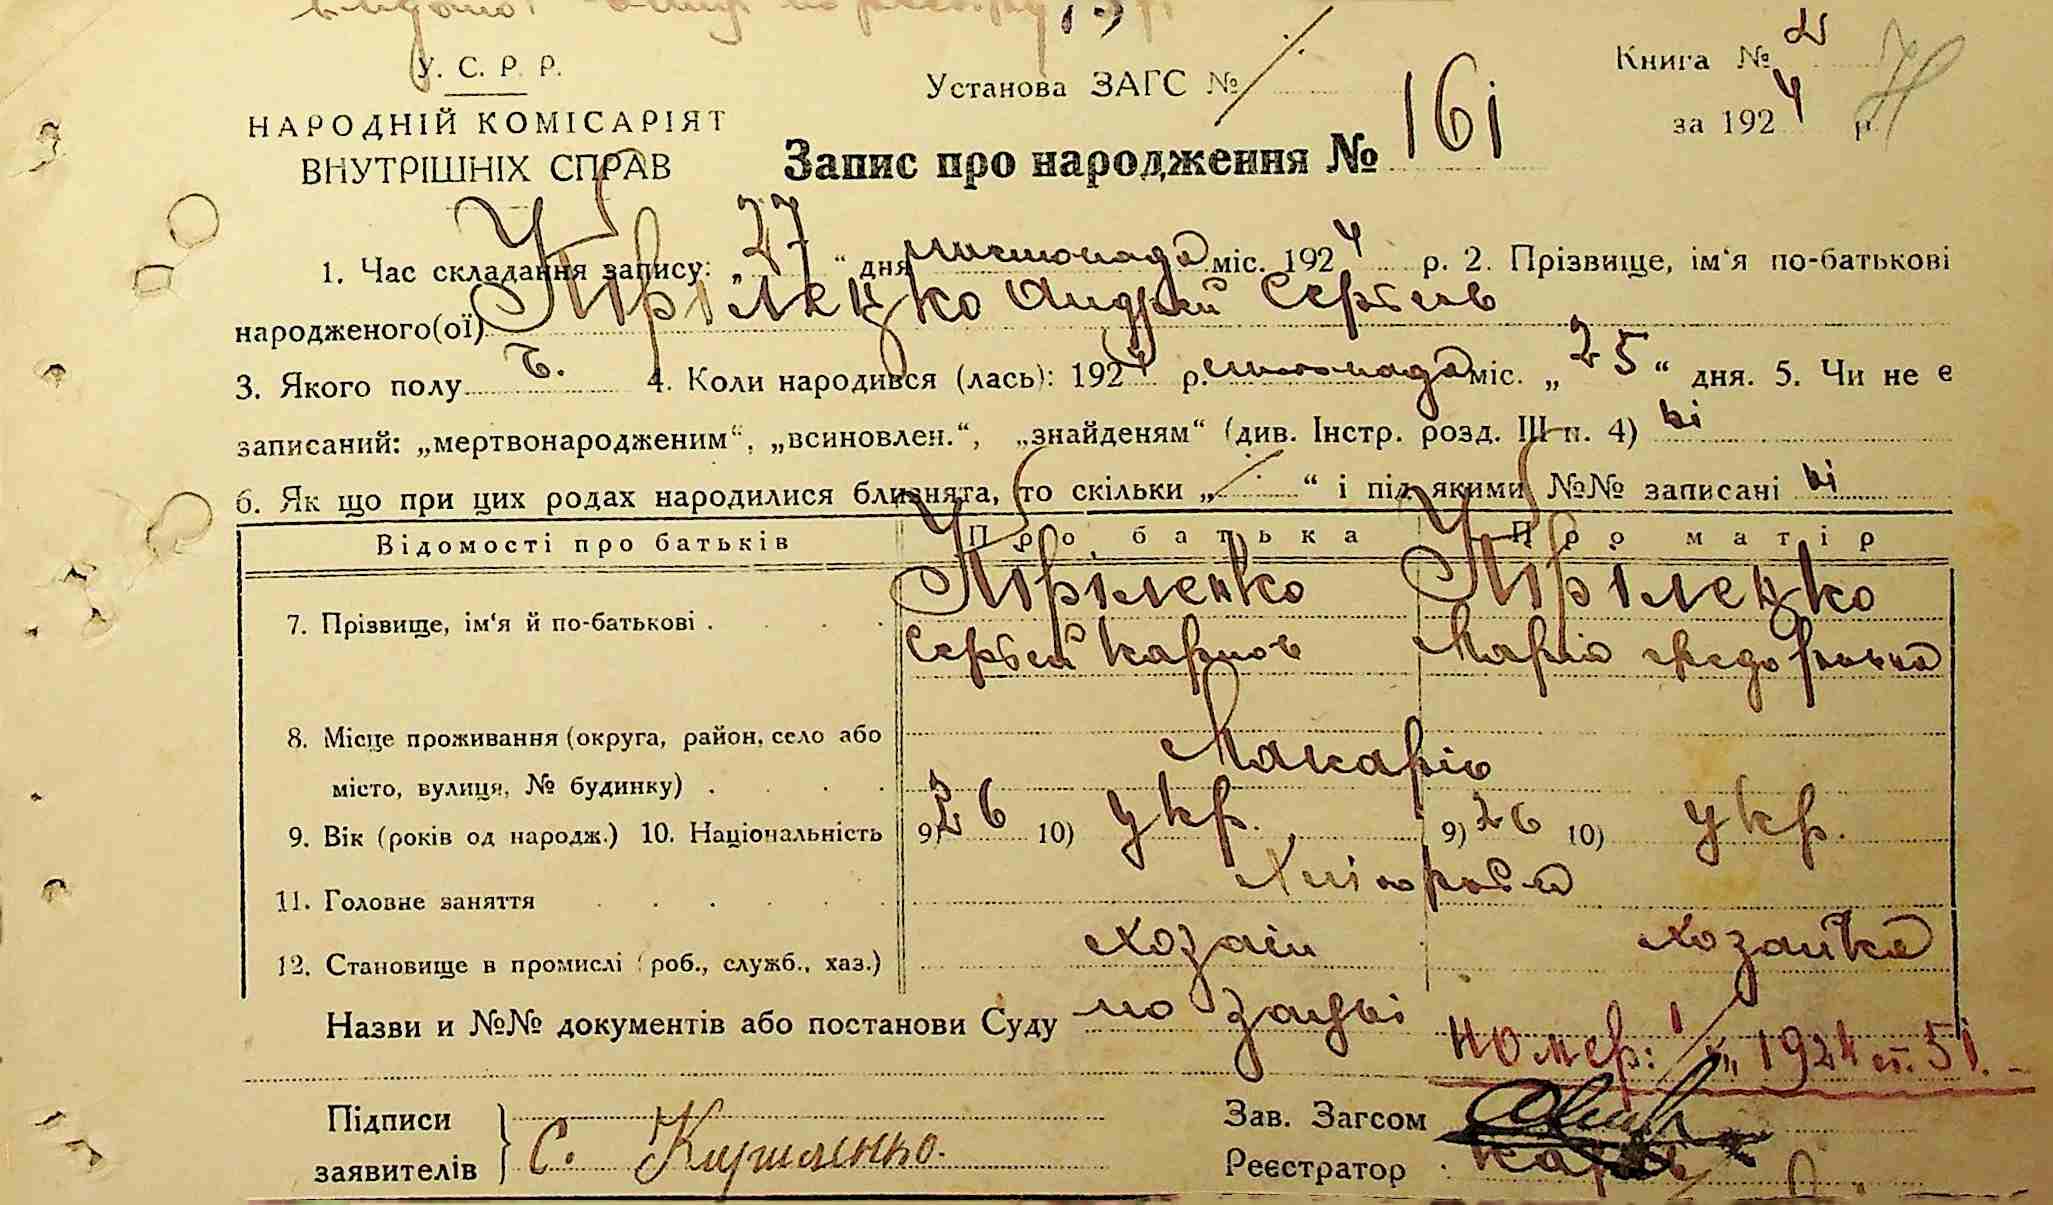 У. С. Р. Р.
НАРОДНІЙ КОМІСАРІЯТ
ВНУТРІШНІХ СПРАВ
Установа ЗАГС №
Книга № 2
за 1924 р.
Запис про народження № 161
1. Час складання запису: „27“ дня листопада міс. 1924 р. 2. Прізвище, ім‘я по-батькові
народженого(ої) Кіріленко Андрей Сергіев
3. Якого полу ч. 4. Коли народився (лась): 1924 р. листопада міс. „25“ дня. 5. Чи не є
записаний: „мертвонародженим“, „всиновлен.“, „знайденям“ (див. Інстр. розд. III п. 4) ні
6. Як що при цих родах народилися близнята, то скільки „ “ і під якими №№ записані ні
Відомості про батьків Про батька Про матір
7. Прізвище, ім‘я й по-батькові . Кіріленко Кіріленко
Сергей Карпов Марія
8. Місце проживання (округа, район, село або
місто, вулиця, № будинку) . Макарів
9. Вік (років од народж.) 10. Національність 9) 26 10) укр. 9) 26 10) укр.
11. Головне заняття Хліборобст
12. Становище в промислі (роб., служб., хаз.) хозаін хозайка
Назви и №№ документів або постанови Суду по заяві
номер: 1 1924 ст. 51.
Підписи
заявителів
С. Кириленко.
Зав. Загсом
Реєстратор